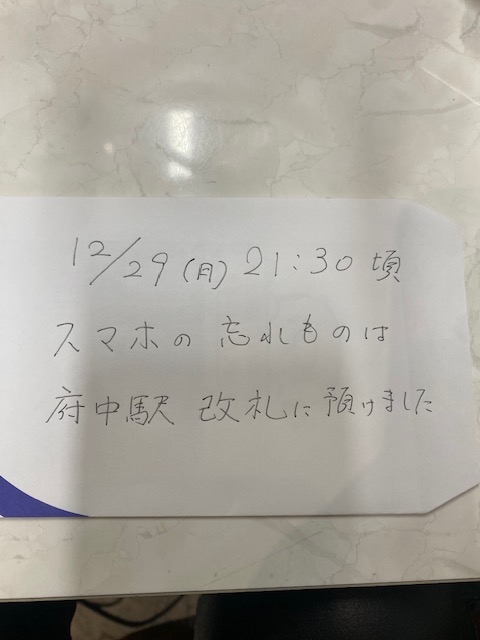 12/29(月) 21:30 頃
スマホの 忘れものは
府中駅 改札に 預けました